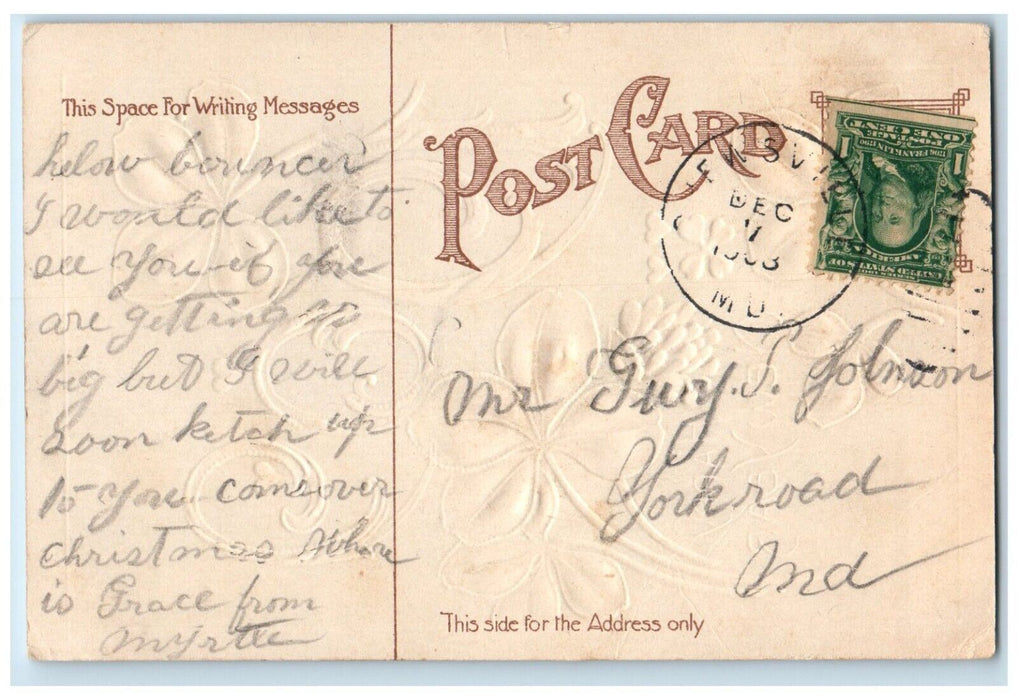 This Space For Writing Messages
helow bouncer
I would like to
see you if you
are getting so
big but I will
soon ketch up
to you come over
christmas Whare
is Grace from
Myrtle
POST CARD
DEC
1908
MD
ONE CENT
1 1
Mr Guy. S. Johnson
York road
Md
This side for the Address only